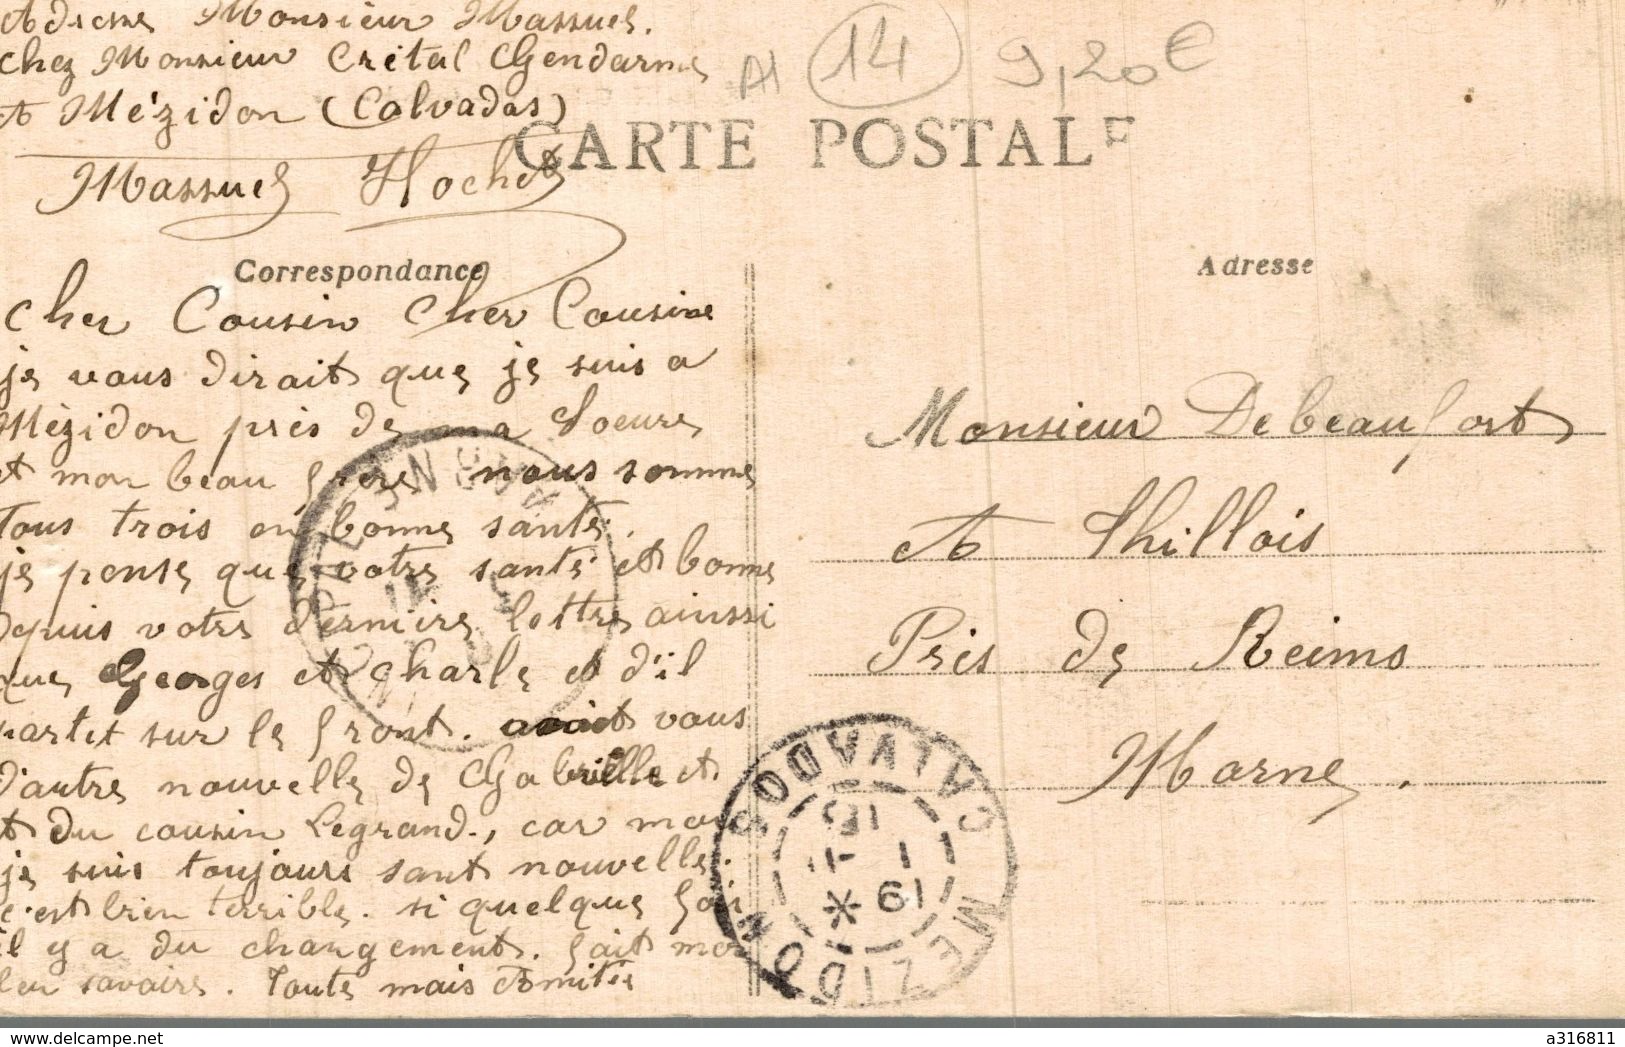 Adresse Monsieur Massuel.
chez Monsieur Crétal Gendarme
A Mézidon (Calvados)
Massuel Hochet
A1 14 9,20€
CARTE POSTALE
Correspondance
Cher Cousin Cher Cousine
je vous dirait que je suis a
Mézidon près de ma Soeure
et mon beau frère nous somme
Tous trois en bonne santé.
je pense que votre santé et bonne
Depuis votre dernière lettre ainsi
que Georges et Charle et d'il
partet sur le front. avait vous
d'autre nouvelle de Gabrielle et
et du cousin Legrand., car moi
je suis toujours sant nouvelle.
c'est bien terrible. si quelque foi
il y a du changement. fait moi
leu savoire. Toute mais Amitié
Adresse
Monsieur Debeaufort
A Thillois
Près de Reims
Marne.
MEZIDON CALVADOS
15
1 -11
* 19
www.delcampe.net
a316811